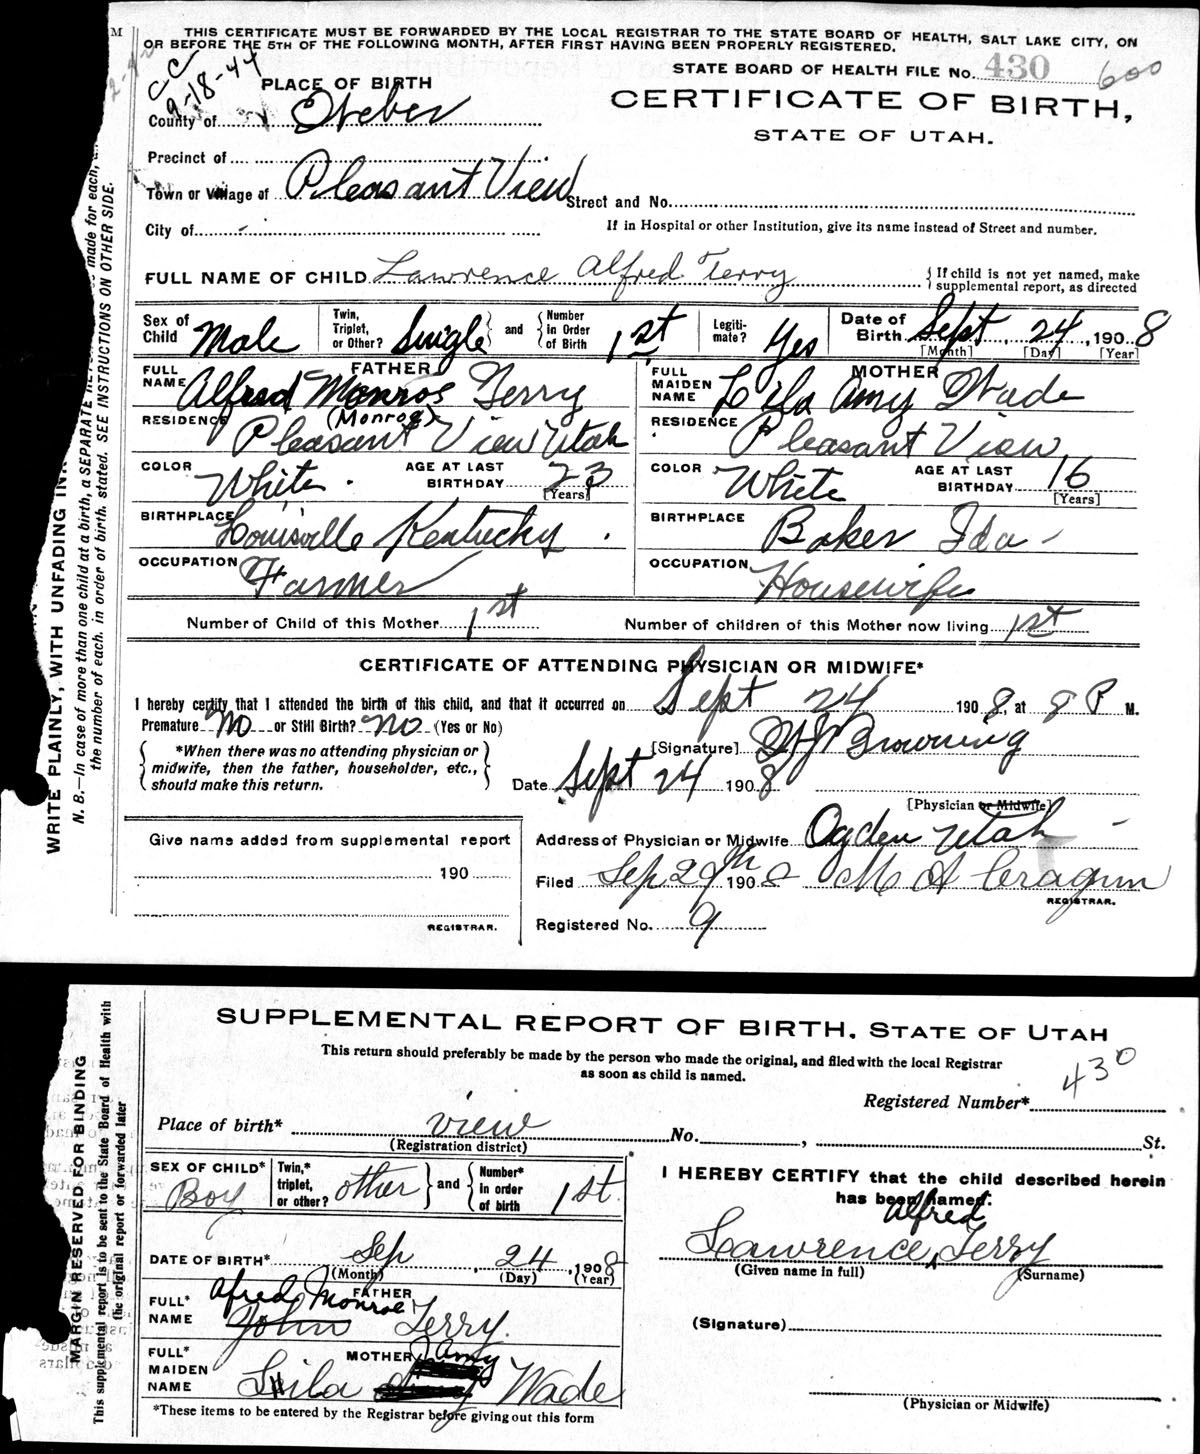 THIS CERTIFICATE MUST BE FORWARDED BY THE LOCAL REGISTRAR TO THE STATE BOARD OF HEALTH, SALT LAKE CITY, ON
OR BEFORE THE 5TH OF THE FOLLOWING MONTH, AFTER FIRST HAVING BEEN PROPERLY REGISTERED.
STATE BOARD OF HEALTH FILE No. 430 600
CC
9-18-44
PLACE OF BIRTH
CERTIFICATE OF BIRTH,
STATE OF UTAH.
County of Weber
Precinct of
Town or Village of Pleasant View Street and No.
City of - If in Hospital or other Institution, give its name instead of Street and number.
FULL NAME OF CHILD Lawrence Alfred Terry { If child is not yet named, make supplemental report, as directed
Sex of Child Male Twin, Triplet, or Other? Single } and { Number in Order of Birth 1st Legiti-mate? Yes Date of Birth Sept 24, 1908
[Month] [Day] [Year]
FATHER
FULL NAME Alfred Monroe Terry
(Monroe)
RESIDENCE Pleasant View Utah
COLOR White AGE AT LAST BIRTHDAY 23 [Years]
BIRTHPLACE Louisville Kentucky
OCCUPATION Farmer
MOTHER
FULL MAIDEN NAME Lila Amy Wade
RESIDENCE Pleasant View
COLOR White AGE AT LAST BIRTHDAY 16 [Years]
BIRTHPLACE Baker Ida
OCCUPATION Housewife
Number of Child of this Mother 1st Number of children of this Mother now living 1st
CERTIFICATE OF ATTENDING PHYSICIAN OR MIDWIFE*
I hereby certify that I attended the birth of this child, and that it occurred on Sept 24 1908, at 8 P M.
Premature No or Still Birth? No (Yes or No)
{ *When there was no attending physician or midwife, then the father, householder, etc., should make this return. }
[Signature] Browning
Date Sept 24 1908
[Physician or Midwife]
Address of Physician or Midwife Ogden Utah
Filed Sep 29th 1908 M A Cragun
REGISTRAR.
Registered No. 9
Give name added from supplemental report
190
REGISTRAR.
WRITE PLAINLY, WITH UNFADING IN
N. B.—In case of more than one child at a birth, a SEPARATE RE made for each,
the number of each, in order of birth, stated. SEE INSTRUCTIONS ON OTHER SIDE.
SUPPLEMENTAL REPORT OF BIRTH, STATE OF UTAH
This return should preferably be made by the person who made the original, and filed with the local Registrar
as soon as child is named.
430
Registered Number*
Place of birth* view No. , St.
(Registration district)
SEX OF CHILD* Boy Twin,* triplet, or other? other } and { Number* in order of birth 1st
DATE OF BIRTH* Sep 24, 1908
(Month) (Day) (Year)
FATHER
FULL* NAME Alfred Monroe John Terry
MOTHER
FULL* MAIDEN NAME Lila Amy Wade
*These items to be entered by the Registrar before giving out this form
I HEREBY CERTIFY that the child described herein
has been named:
Alfred
Lawrence Terry
(Given name in full) (Surname)
(Signature)
(Physician or Midwife)
MARGIN RESERVED FOR BINDING
This supplemental report is to be sent to the State Board of Health with
the original report or forwarded later